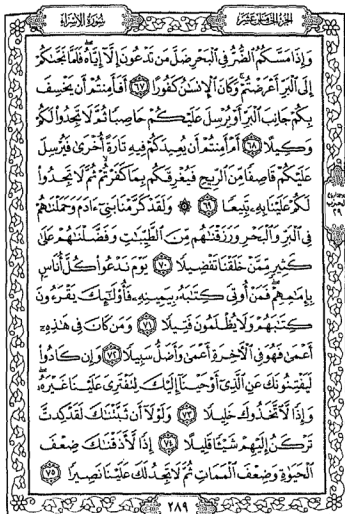 الجزء الخامس عشر
سورة الإسراء
وَإِذَا مَسَّكُمُ ٱلضُّرُّ فِي ٱلْبَحْرِ ضَلَّ مَن تَدْعُونَ إِلَّآ إِيَّاهُ فَلَمَّا نَجَّىٰكُمْ
إِلَى ٱلْبَرِّ أَعْرَضْتُمْ وَكَانَ ٱلْإِنسَٰنُ كَفُورًا ٦٧ أَفَأَمِنتُمْ أَن يَخْسِفَ
بِكُمْ جَانِبَ ٱلْبَرِّ أَوْ يُرْسِلَ عَلَيْكُمْ حَاصِبًا ثُمَّ لَا تَجِدُوا۟ لَكُمْ
وَكِيلًا ٦٨ أَمْ أَمِنتُمْ أَن يُعِيدَكُمْ فِيهِ تَارَةً أُخْرَىٰ فَيُرْسِلَ
عَلَيْكُمْ قَاصِفًا مِّنَ ٱلرِّيحِ فَيُغْرِقَكُم بِمَا كَفَرْتُمْ ثُمَّ لَا تَجِدُوا۟
لَكُمْ عَلَيْنَا بِهِۦ تَبِيعًا ٦٩ ۞ وَلَقَدْ كَرَّمْنَا بَنِيٓ ءَادَمَ وَحَمَلْنَٰهُمْ
فِي ٱلْبَرِّ وَٱلْبَحْرِ وَرَزَقْنَٰهُم مِّنَ ٱلطَّيِّبَٰتِ وَفَضَّلْنَٰهُمْ عَلَىٰ
كَثِيرٍ مِّمَّنْ خَلَقْنَا تَفْضِيلًا ٧٠ يَوْمَ نَدْعُوا۟ كُلَّ أُنَاسٍۭ
بِإِمَٰمِهِمْ فَمَنْ أُوتِيَ كِتَٰبَهُۥ بِيَمِينِهِۦ فَأُو۟لَٰٓئِكَ يَقْرَءُونَ
كِتَٰبَهُمْ وَلَا يُظْلَمُونَ فَتِيلًا ٧١ وَمَن كَانَ فِي هَٰذِهِۦٓ
أَعْمَىٰ فَهُوَ فِي ٱلْءَاخِرَةِ أَعْمَىٰ وَأَضَلُّ سَبِيلًا ٧٢ وَإِن كَادُوا۟
لَيَفْتِنُونَكَ عَنِ ٱلَّذِيٓ أَوْحَيْنَآ إِلَيْكَ لِتَفْتَرِيَ عَلَيْنَا غَيْرَهُۥ
وَإِذًا لَّٱتَّخَذُوكَ خَلِيلًا ٧٣ وَلَوْلَآ أَن ثَبَّتْنَٰكَ لَقَدْ كِدتَّ
تَرْكَنُ إِلَيْهِمْ شَيْـًٔا قَلِيلًا ٧٤ إِذًا لَّأَذَقْنَٰكَ ضِعْفَ
ٱلْحَيَوٰةِ وَضِعْفَ ٱلْمَمَاتِ ثُمَّ لَا تَجِدُ لَكَ عَلَيْنَا نَصِيرًا ٧٥
٢٨٩